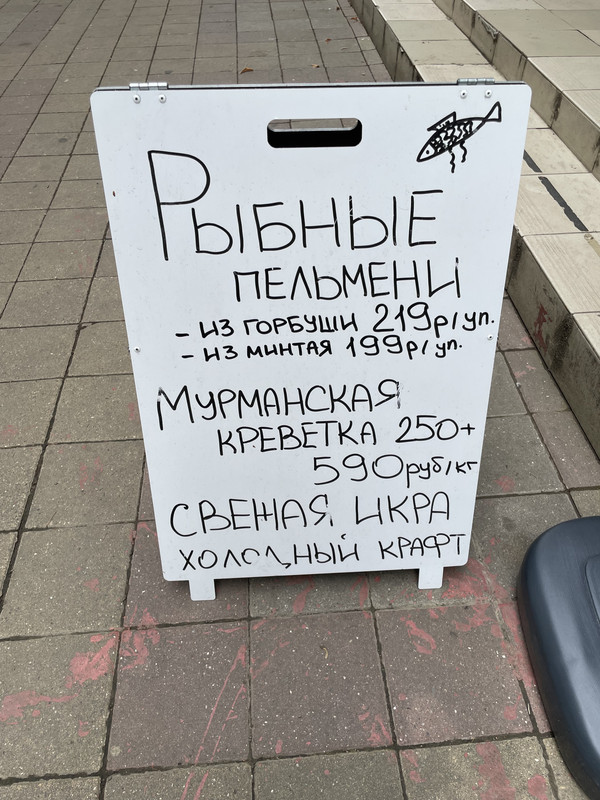 Рыбные
пельмени
- из горбуши 219р/уп.
- из минтая 199р/уп.
Мурманская
креветка 250+
590руб/кг
Свежая икра
холодный крафт